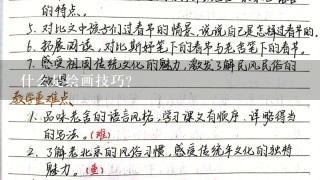 的特点。
5. 对比文中孩子们过春节的情景,说说自己是怎样过春节的。
6. 拓展阅读,对比斯好笔下的春节与老舍笔下的春节。
什么是绘画技巧?
7. 感受祖国传统文化的魅力,激发了解民风民俗的
教学重难点
1. 品味老舍的语言风格,学习课文有顺序、详略得当
的写法。(难)
2. 了解老北京的风俗习惯,感受传统年文化的独特
魅力。(重)